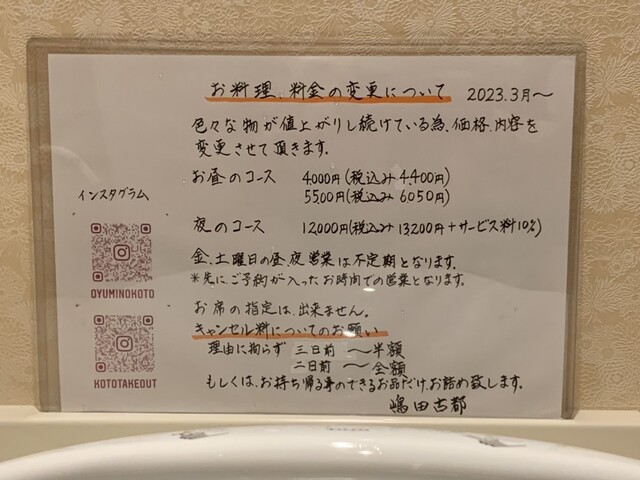 お料理、料金の変更について 2023.3月〜
色々な物が値上がりし続けている為、価格、内容を
変更させて頂きます。
お昼のコース 4,000円(税込み4,400円)
5500円(税込み6050円)
夜のコース 12,000円(税込み13200円+サービス料10%)
金、土曜日の昼夜営業は不定期となります。
*先に、ご予約が入ったお時間での営業となります。
お席の指定は、出来ません。
キャンセル料についてのお願い
理由に拘らず 三日前 〜半額
二日前 〜全額
もしくは、お持ち帰る事のできるお品だけ、お詰め致します。
嶋田古都
インスタグラム
OYUMINOKOTO
KOTOTAKEOUT